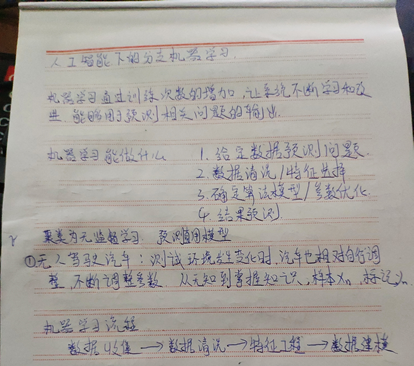 人工智能下的分支机器学习.
机器学习通过训练次数的增加,让系统不断学习和改
进,能够用于预测相关问题的输出.
机器学习能做什么 1. 给定数据预测问题
2. 数据清洗/特征选择
3. 确定算法模型/参数优化
4. 结果预测
聚类为无监督学习 预测用模型
①无人驾驶汽车:测试环境发生变化时,汽车也相对自行调
整,不断调整参数 从无知到掌握知识,样本x。标记y。
机器学习流程
数据收集→数据清洗→特征工程→数据建模